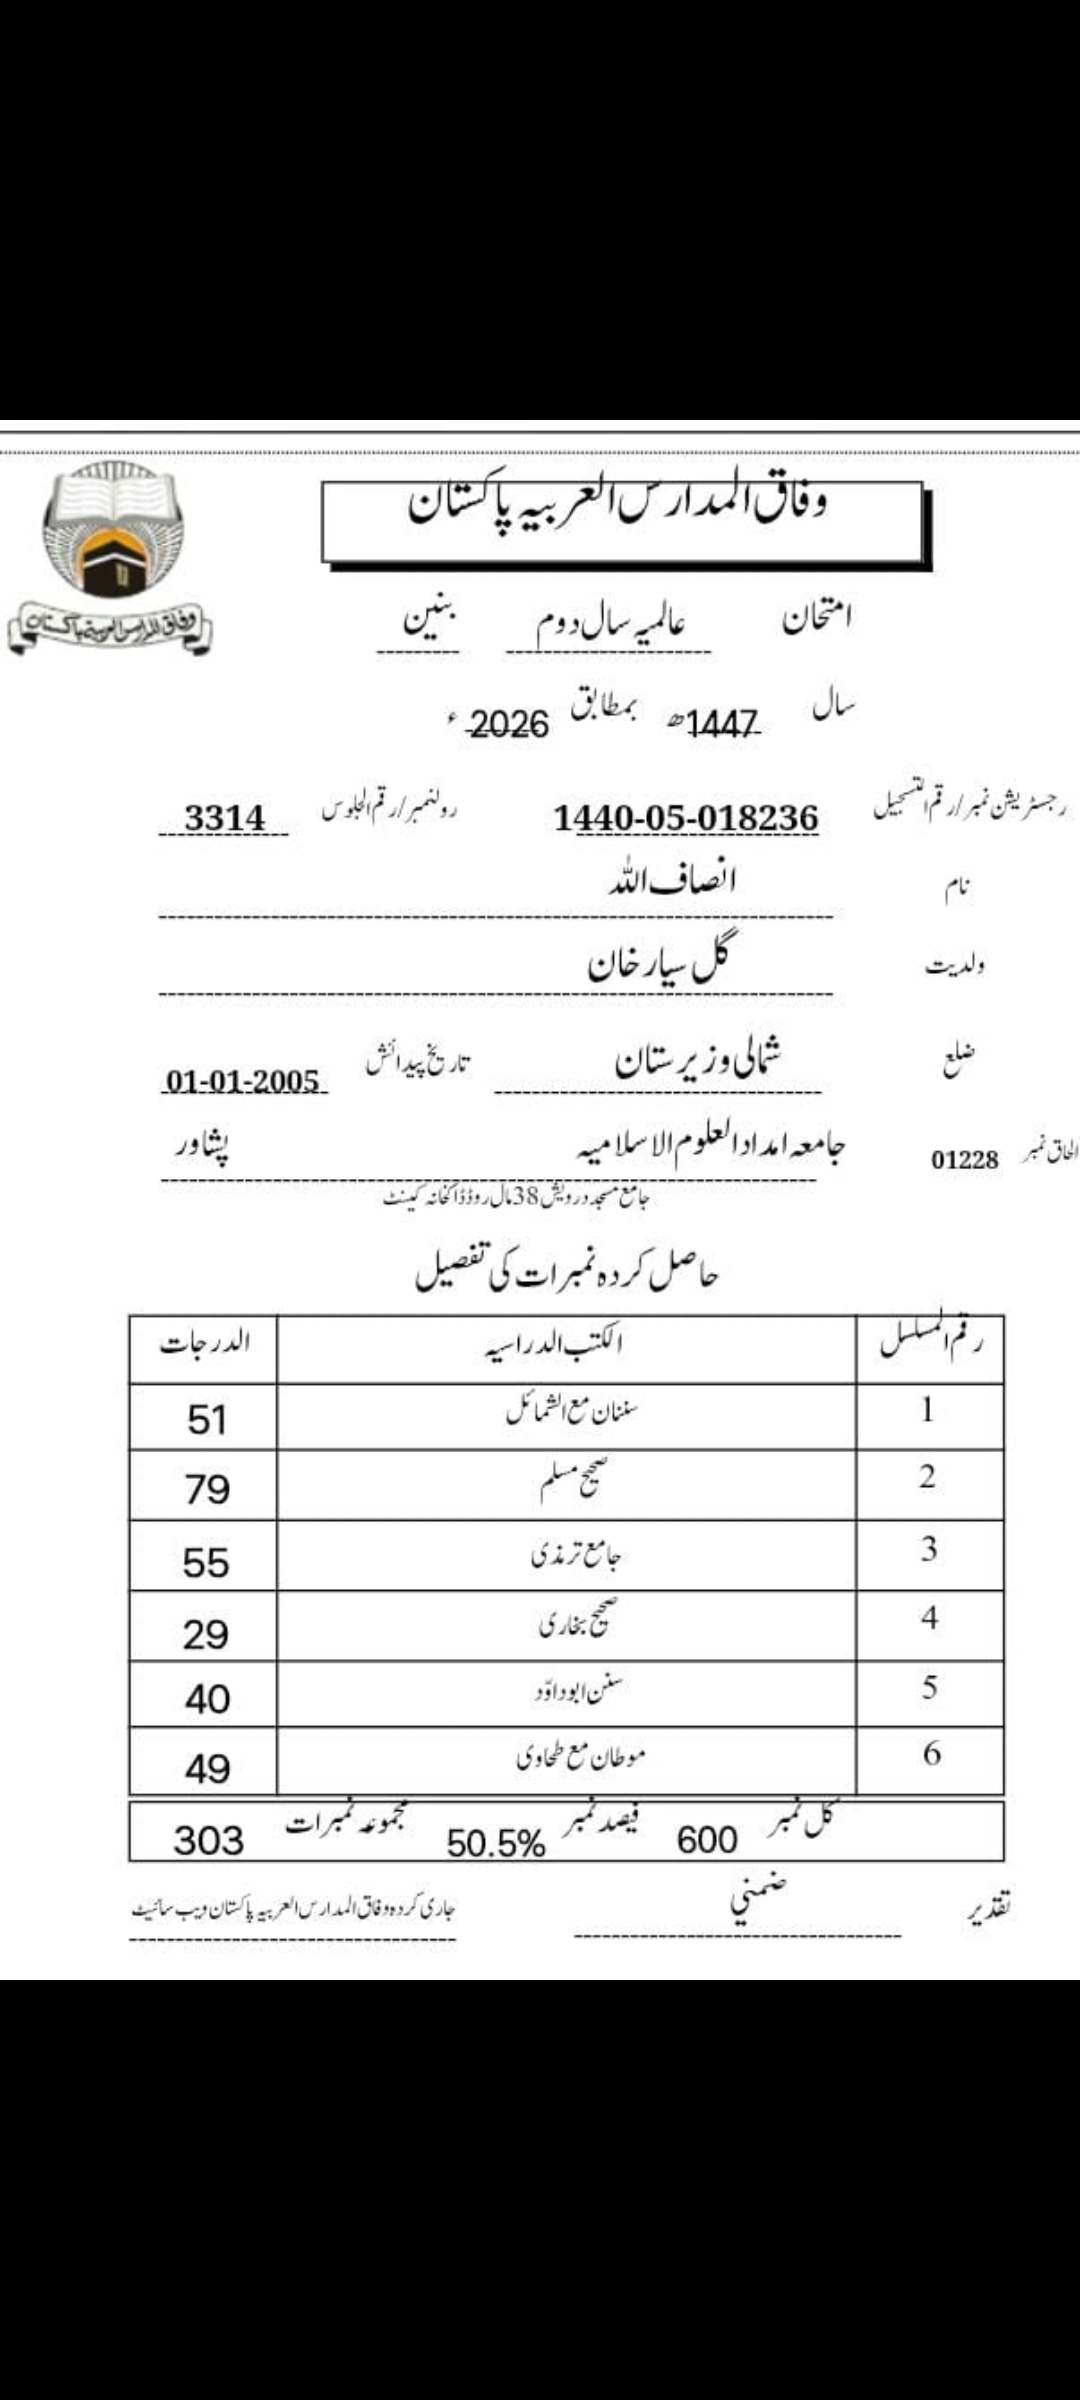 وفاق المدارس العربیہ پاکستان
وفاق المدارس العربیہ پاکستان
امتحان عالمیہ سال دوم بنین
سال 1447ھ بمطابق 2026ء
رجسٹریشن نمبر/رقم التسجیل 1440-05-018236 رولنمبر/رقم الجلوس 3314
نام انصاف اللہ
ولدیت گل سیار خان
ضلع شمالی وزیرستان تاریخ پیدائش 01-01-2005
الحاق نمبر 01228 جامعہ امداد العلوم الاسلامیہ پشاور
جامع مسجد درویش 38 مال روڈ ڈاکخانہ کینٹ
حاصل کردہ نمبرات کی تفصیل
رقم المسلسل الکتب الدراسیہ الدرجات
1 سننان مع الشمائل 51
2 صحیح مسلم 79
3 جامع ترمذی 55
4 صحیح بخاری 29
5 سنن ابوداؤد 40
6 موطان مع طحاوی 49
کل نمبر 600 فیصد نمبر 50.5% مجموعہ نمبرات 303
تقدیر ضمني جاری کردہ وفاق المدارس العربیہ پاکستان ویب سائیٹ